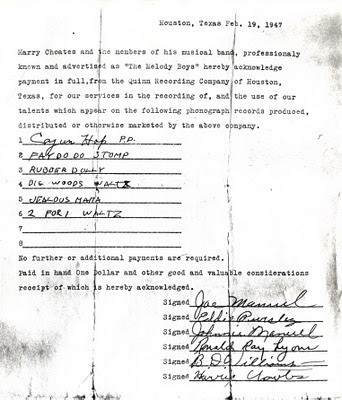 Houston, Texas Feb. 19, 1947
Harry Choates and the members of his musical band, professionaly
known and advertised as "The Melody Boys" hereby acknowledge
payment in full,from the Quinn Recording Company of Houston,
Texas, for our services in the recording of, and the use of our
talents which appear on the following phonograph records produced,
distributed or otherwise marketed by the above company.
1 Cajun Hop P.D.
2 FAY DO DO STOMP
3 RUBBER DOLLY
4 BIG WOODS WALTZ
5 JEALOUS MAMA
6 2 FOR 1 WALTZ
7
8
No further or additional payments are required.
Paid in hand One Dollar and other good and valuable considerations
receipt of which is hereby acknowledged.
Signed Joe Manuel
Signed Eddie Pursley
Signed Johnnie Manuel
Signed Ronald Ray Lyons
Signed B.D. Williams
Signed Harry Choates